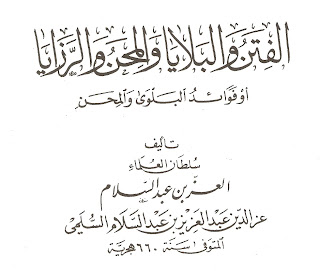 الفِتَنُ وَالبَلَايَا وَالمِحَنُ وَالرَّزَايَا
أو فَوَائدُ البَلوَى وَالمِحَن
تأليف
سُلطَان العُلماء
العز بن عبد السلام
عز الدين عبد العزيز بن عبد السلام السلمي
المتوفى سنة ٦٦٠ هجرية